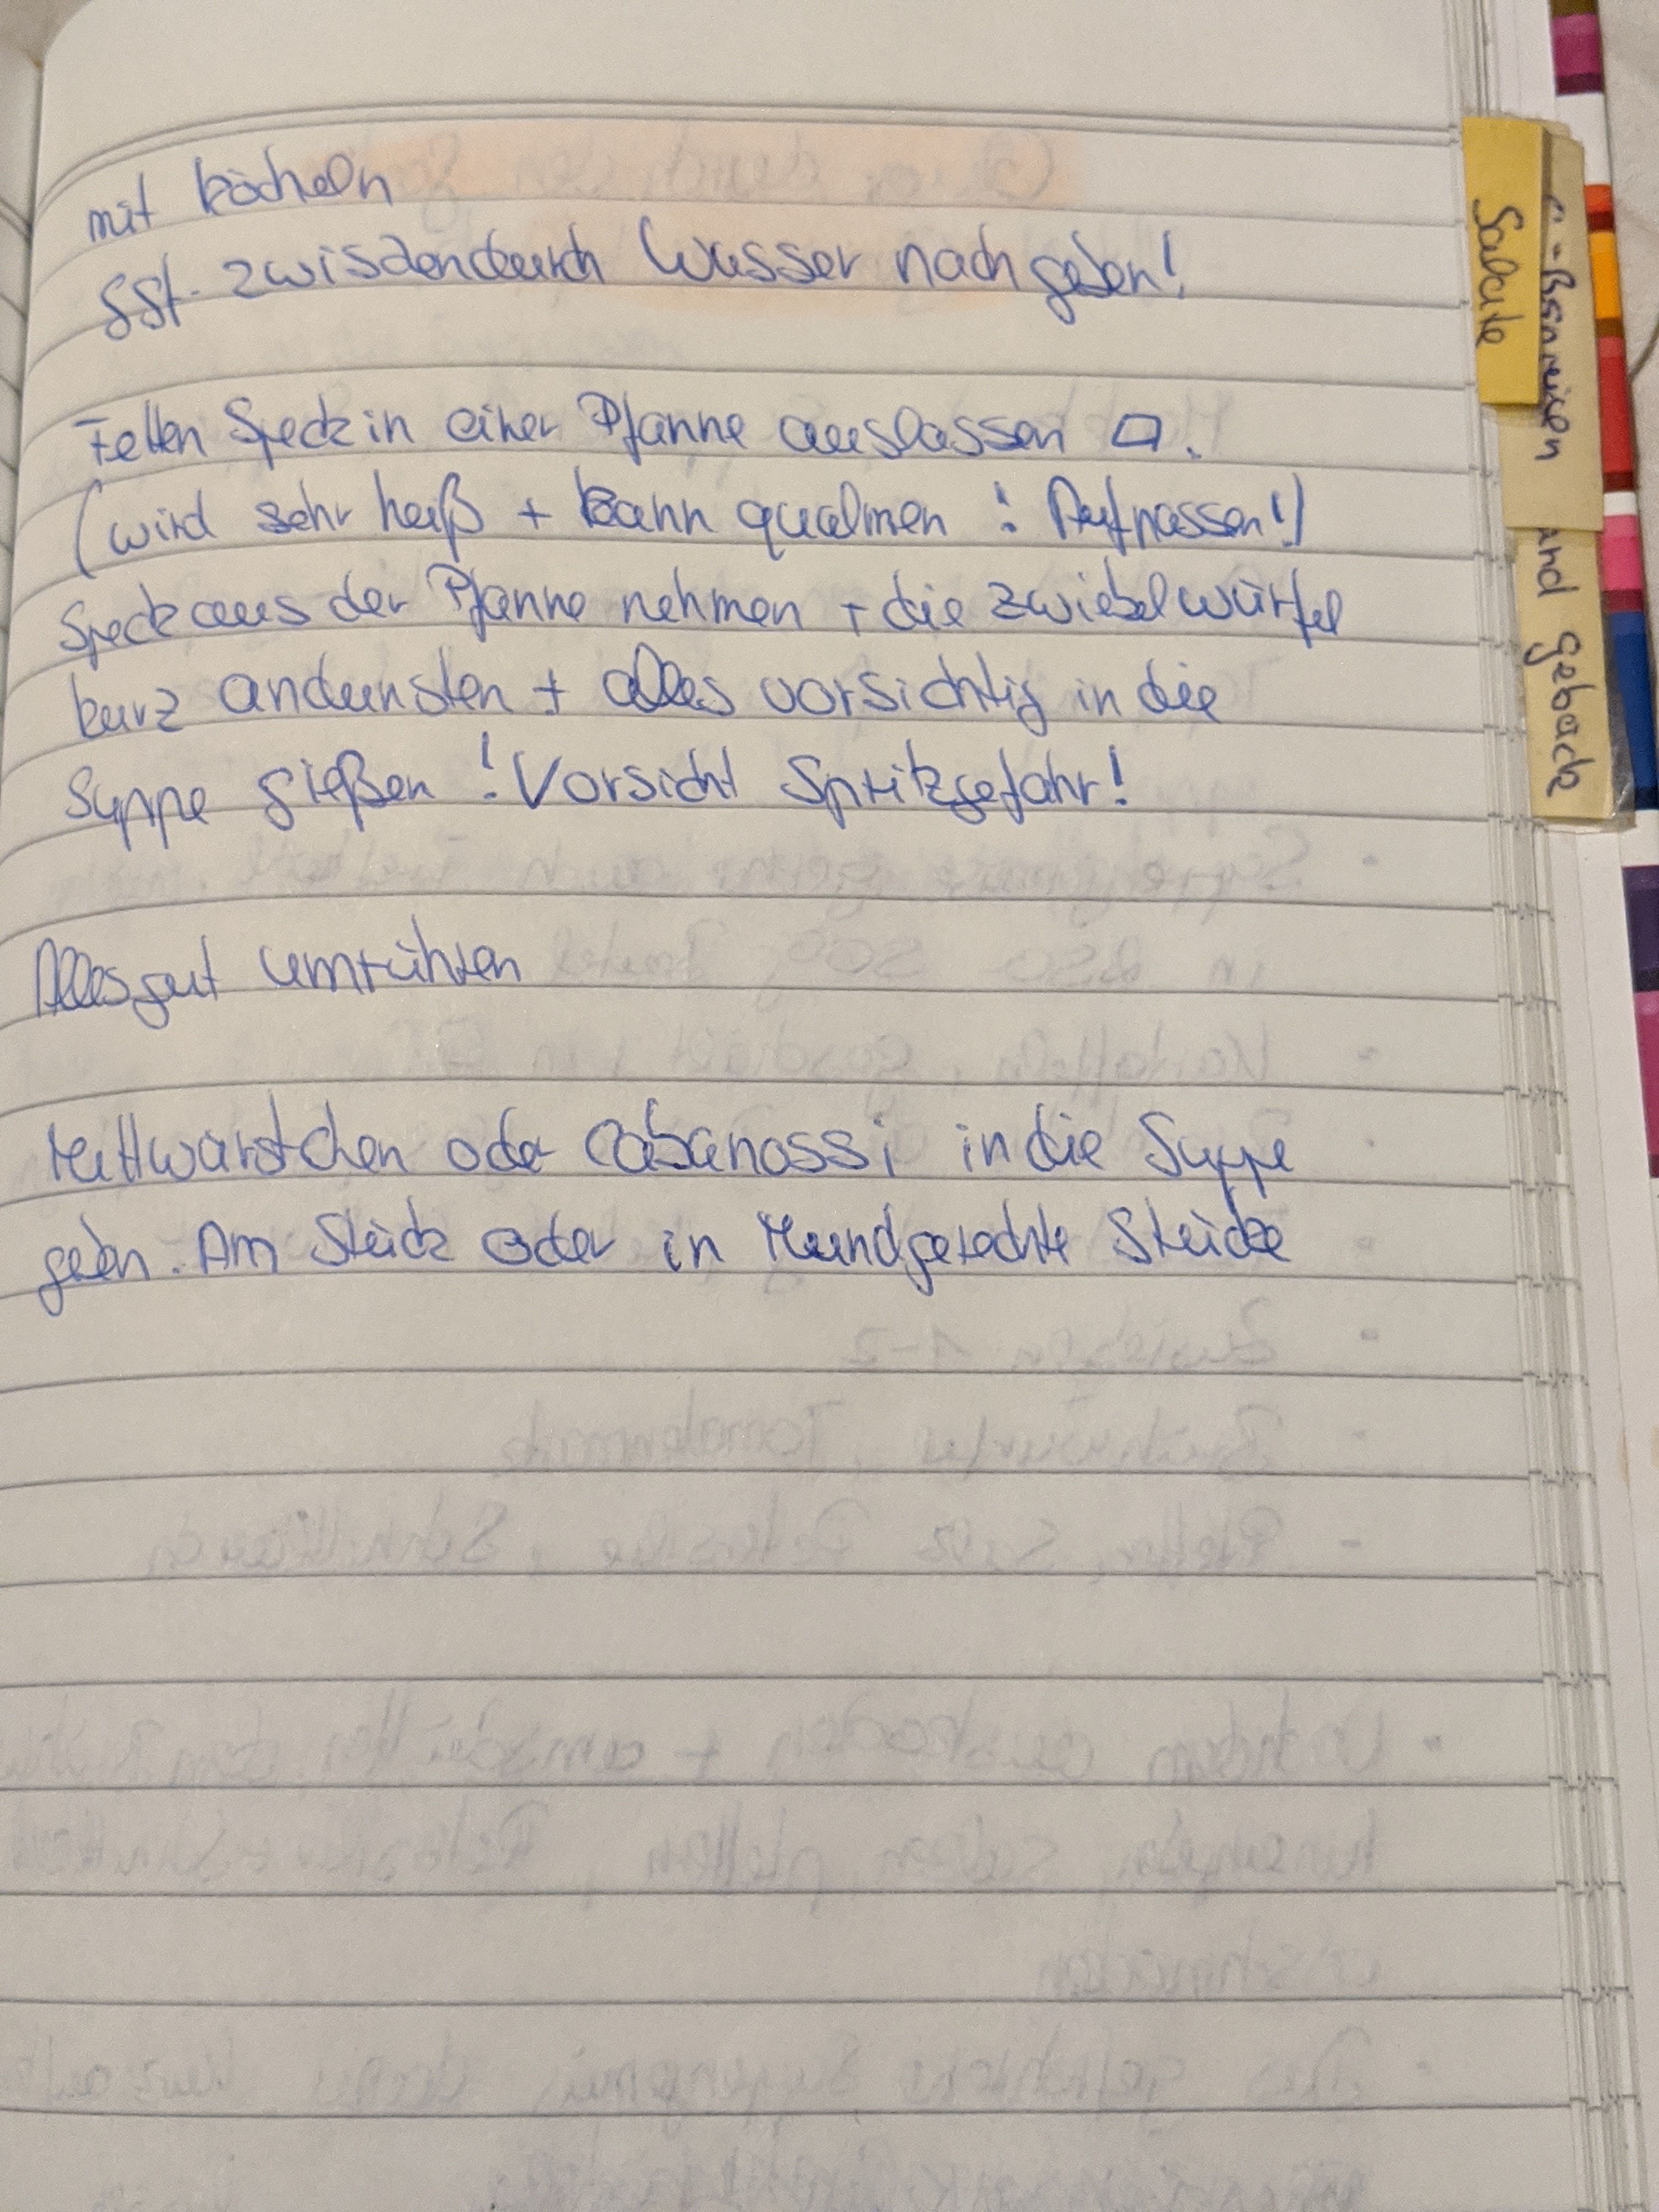 mit köcheln
ggf. zwischendurch Wasser nachgeben!
Fetten Speck in einer Pfanne auslassen
(wird sehr heiß + kann qualmen ! Aufpassen!)
Speck aus der Pfanne nehmen + die Zwiebelwürfel
kurz andünsten + alles vorsichtig in die
Suppe gießen ! Vorsicht Spritzgefahr!
Alles gut umrühren
Mettwürstchen oder Cabanossi in die Suppe
geben. Am Stück oder in Mundgerechte Stücke
Salate
und Gebäck